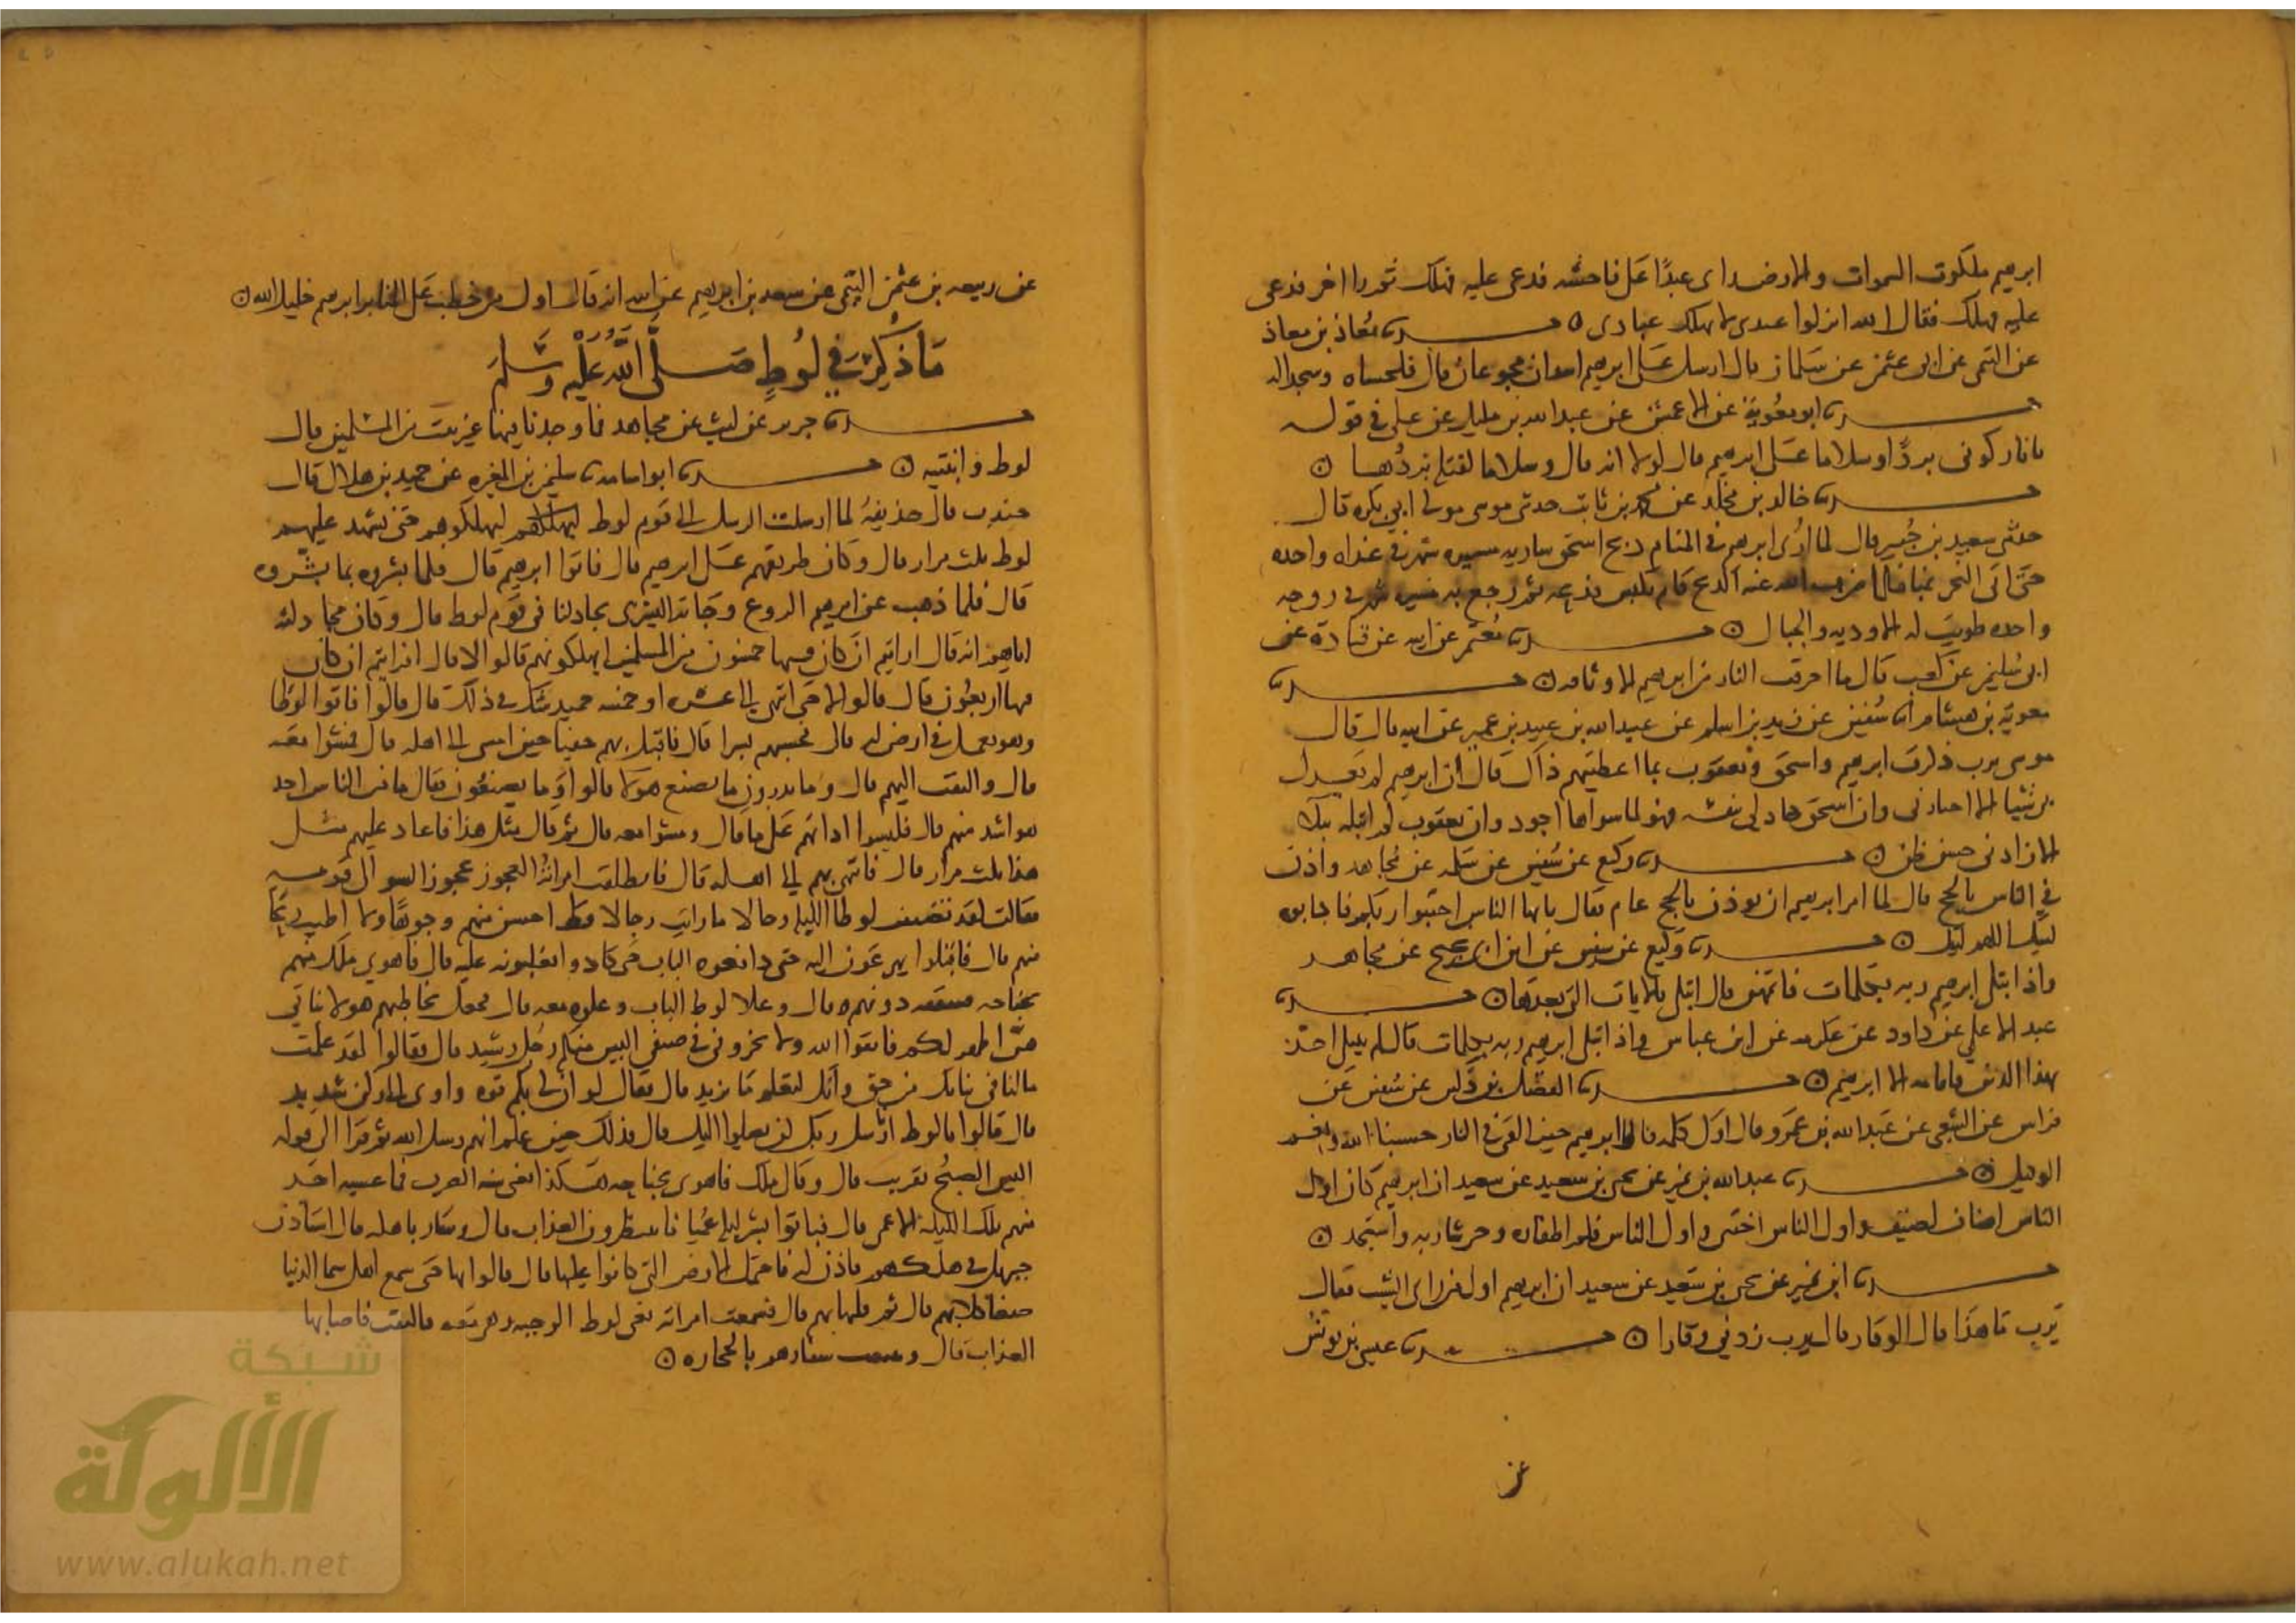 ابرهيم ملكوت السموات والارض راى عبدًا عَلى فاحشه فدعى عليه فهلك ثم راا اخر فدعى
عليه فهلك فقال الله انزلوا عبدى لا يهلك عبادى ۞ حدثنا مُعاذ بن معاذ
عن التيمى عن ابى عثمن عن سَلمان قال ارسل عَلى ابرهيم اسدان مجوعان قال فلحساه وسجدا له
حدثنا ابو معُوية عن الاعمش عن عبد الله بن مليل عن على فى قوله
يا نار كونى بردًا وسلاما عَلى ابرهيم قال لولا انه قال وسلاما لقتله بردُها ۞
حدثنا خالد بن مخلد عن محمد بن ثابت حدثنى موسى مولى ابى بكره قال
حدثنى سعيد بن جُبير قال لما اُرى ابرهيم فى المنام ذبح اسحق سار به مسيره شهر فى غداه واحده
حَتى اتى النحر بمنا فلما صرف الله عنه الذبح قام بكبش فذبحه ثم رجع به مسيره شهر فى روحه
واحده طويت له الاوديه والجبال ۞ حدثنا مُعتمر عن ابيه عن قتادة عن
ابى سُليمن عن كعب قال ما احرقت النار من ابرهيم الا وثاقه ۞ حدثنا
معوية بن هشام ثنا سُفين عن زيد بن اسلم عن عبيد الله بن عبيد بن عمير عن ابيه قال قال
موسى يرب ذكرت ابرهيم واسحق ويعقوب بما اعطيتهم ذاك قال ان ابرهيم لم يعدل
بى شيا الا اختارنى وان اسحق جاد لى بنفسه فهو لما سواها اجود وان يعقوب لم ابتله ببلا
الا زاد بى حسن ظن ۞ حدثنا وكيع عن سُفين عن سَلمه عن مُجاهد واذن
فى الناس بالحج قال لما امر ابرهيم ان يوذن بالحج قام فقال يايها الناس اجيبوا ربكم فاجابوه
لبيك اللهم لبيك ۞ حدثنا وكيع عن سفين عن ابن ابى نجيح عن مجاهد
واذ ابتلى ابرهيم ربه بكلمات فاتمهن قال ابتلى بالايات التى بعدها ۞ حدثنا
عبد الاعلى عن داود عن عكرمه عن ابن عباس واذ ابتلى ابرهيم ربه بكلمات قال لم يبتل احدٌ
بهذا الدين فاقامه الا ابرهيم ۞ حدثنا الفضل بن دكين عن سُفين عَن
فراس عن الشعبى عن عَبد الله بن عَمرو قال اوّل كلمه قالها ابرهيم حين القى فى النار حسبنا الله ونعم
الوكيل ۞ حدثنا عبد الله بن نمير عن يحيى بن سعيد عن سعيد ان ابرهيم كان اول
الناس اضاف الضيف واول الناس اختتن واول الناس قلم اظفاره وجز شاربه واستحد ۞
حدثنا ابن نمير عن يحيى بن سَعيد عن سعيد ان ابرهيم اول من راى الشيب فقال
يَرب ما هذا قال الوقار قال يرب زدنى وقارا ۞ حدثنا عيسى بن يونس
عن
عن ربيعه بن عثمن التيمى عن سعد بن ابرهيم عن ابيه انه قال اول من خطب عَلى المنابر ابرهيم خليل الله ۞
مَا ذُكِرَ فِي لُوطٍ صَلَّى اللَّهُ عَلَيْهِ وَسَلَّمَ
حدثنا جرير عن ليث عن مجاهد فما وجدنا فيها غير بيت من المسلمين قال
لوط وابنتيه ۞ حدثنا ابو اسامه ثنا سليمن بن المغيره عن حميد بن هلال قال
جندب قال حذيفة لما ارسلت الرسل الى قوم لوط ليهلكوهم حتى يشهد عليهم
لوط ثلث مرار قال وكان طريقهم عَلى ابرهيم قال فاتوا ابرهيم قال فلما بشروه بما بشروه
قال فلما ذهب عن ابرهيم الروع وجاته البشرى يجادلنا فى قوم لوط قال وكان مجادلته
اياهم انه قال ارايتم ان كان فيها خمسون من المسلمين اتهلكونهم قالوا لا قال افرايتم ان كان
فيها اربعُون قال قالوا لا حتى انتهى الى عشره او خمسه حميد شك فى ذلك قال قالوا فاتوا لوطا
وهو يعمل فى ارض له قال فحسبهم بشرا قال فاقبل بهم خفيا حين امسى الى اهله قال فمشوا معه
قال والتفت اليهم قال وما تدرون ما يصنع هولا قالوا وما يصنعُون فقال ما من الناس احد
هو اشد منهم قال فلبسوا اذانهم عَلى ما قال ومشوا معه قال ثم قال مثل هذا فاعاد عليهم مثل
هذا ثلث مرار قال فانتهى بهم الى اهله قال فانطلقت امراتهُ العجوز عجوز السو الى قومه
فقالت لقد تضيف لوطا الليله رجالا ما رايت رجالا قط احسن منهم وجوهًا ولا اطيب ريحًا
منهم قال فاقبلوا يهرعون اليه حتى دافعوه الباب حتى كادوا يغلبونه عليه قال فاهوى ملك منهم
بجناحه فصفقه دونهم قال وعلا لوط الباب وعلوه معه قال فجعل يخاطبهم هولا بناتى
هنّ اطهر لكم فاتقوا الله ولا تخزونى فى ضيفى اليس منكم رجُل رشيد قال فقالوا لقد علمت
ما لنا فى بناتك من حق وانك لتعلم ما نريد قال فقال لو ان لى بكم قوه او اوى الى ركن شديد
قال قالوا يا لوط انا رسل ربك لن يصلوا اليك قال فذلك حين علم انهم رسل الله ثم قرا الى قوله
اليس الصبحُ بقريب قال وقال ملك فاهوى بجناحه هكذا يعنى شبه الضرب فما غشيه احد
منهم تلك الليله الا عمى قال فباتوا بشر ليله عُميا ينتظرون العذاب قال وسار باهله قال استاذن
جبريل فى هلاكهم فاذن له فاحتمل الارض التى كانوا عليها قال فالوا بها حتى سمع اهل سما الدنيا
ضغا كلابهم قال ثم قلبها بهم قال فسمعت امراته يعنى لوط الوجبه وهى معه فالتفتت فاصابها
العذاب قال وتتبعت سفارهم بالحجاره ۞
شبكة
الألوكة
www.alukah.net